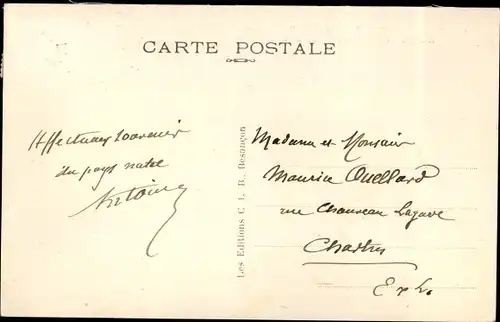 CARTE POSTALE
Affectueux souvenir
du pays natal
Antoine
Les Editions C. L. B., Besançon
Madame et Monsieur
Maurice Ouellard
rue Chauveau Lagarde
Chartres
E & L.